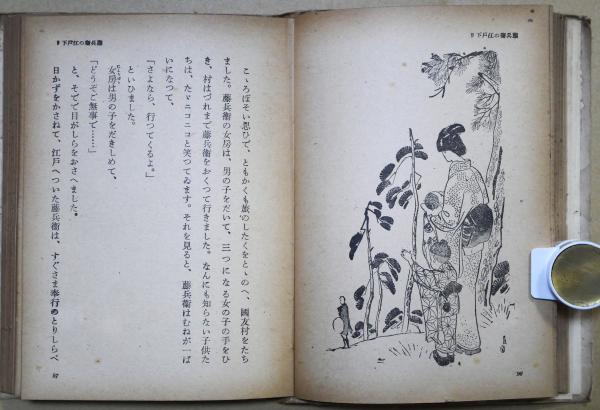 藤兵衞の江戸下り
86
藤兵衞の江戸下り
こゝろぼそい思ひで、ともかくも旅のしたくをとゝのへ、國友村をたち
ました。藤兵衞の女房は、男の子をだいて、三つになる女の子の手をひ
き、村はづれまで藤兵衞をおくつて行きました。なんにも知らない子供た
ちは、たゞニコニコと笑つてゐます。それを見ると、藤兵衞はむねが一ぱ
いになつて、
「さよなら、行つてくるよ。」
といひました。
女房は男の子をだきしめて、
「どうぞご無事で……」
と、そでで目がしらをおさへました。
日かずをかさねて、江戸へついた藤兵衞は、すぐさま奉行のとりしらべ
87